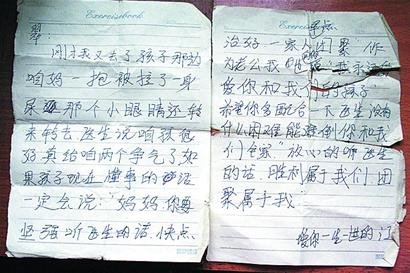 Exercisebook
翠:
刚才我又去了孩子那边
咱妈一抱被拉了一身
尿 那个小眼睛还转
来转去 医生说咱孩很
好真给咱两个争气了如
果孩子现在懂事的话
一定会说:"妈妈你要
坚强听医生的话.快点
Exercisebook
治好一家人团聚"作
为老公我
爱你和我们的孩子
希望你多配合一下医生没有
什么困难能 倒你和我
们 家"放心的听医生
的话.胜利属于我们.团
聚属于我"
爱你一生一世的江